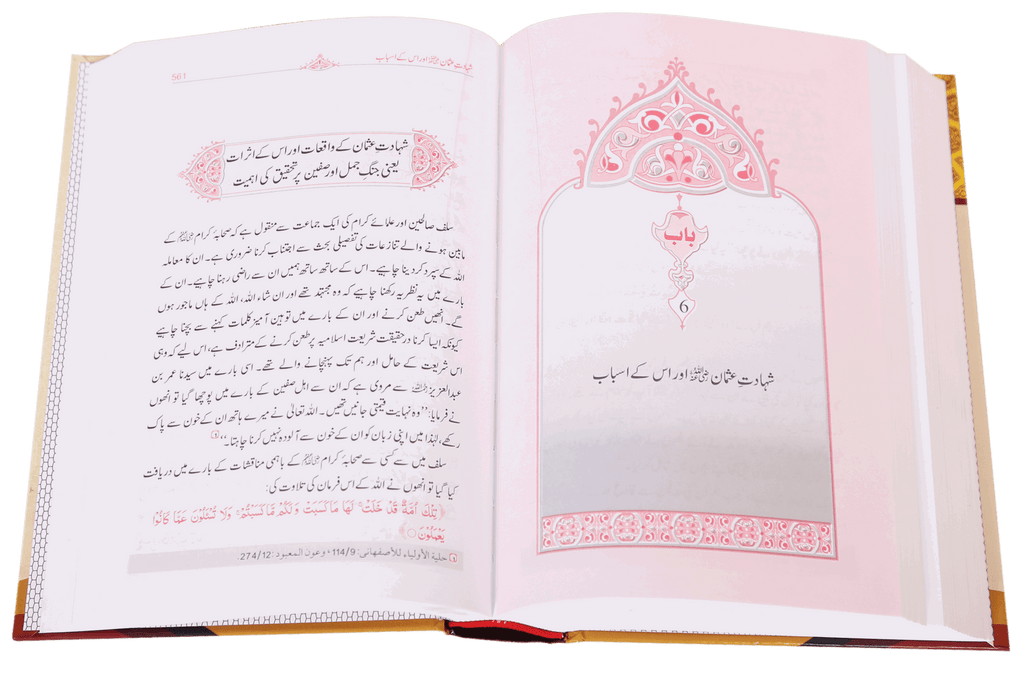 باب
6
شہادتِ عثمان رضی اللہ عنہ اور اس کے اسباب
شہادتِ عثمان رضی اللہ عنہ اور اس کے اسباب
561
شہادتِ عثمان کے واقعات اور اس کے اثرات
یعنی جنگِ جمل اور صفین پر تحقیق کی اہمیت
سلف صالحین اور علمائے کرام کی ایک جماعت سے منقول ہے کہ صحابۂ کرام رضی اللہ عنہم کے
مابین ہونے والے تنازعات کی تفصیلی بحث سے اجتناب کرنا ضروری ہے۔ ان کا معاملہ
اللہ کے سپرد کردینا چاہیے۔ اس کے ساتھ ساتھ ہمیں ان سے راضی رہنا چاہیے۔ ان کے
بارے میں یہ نظریہ رکھنا چاہیے کہ وہ مجتہد تھے اور ان شاء اللہ، اللہ کے ہاں ماجور ہوں
گے۔ انھیں طعن کرنے اور ان کے بارے میں توہین آمیز کلمات کہنے سے بچنا چاہیے
کیونکہ ایسا کرنا درحقیقت شریعت اسلامیہ پر طعن کرنے کے مترادف ہے، اس لیے کہ وہی
اس شریعت کے حامل اور ہم تک پہنچانے والے تھے۔ اسی بارے میں سیدنا عمر بن
عبدالعزیز رحمہ اللہ سے مروی ہے کہ ان سے اہل صفین کے بارے میں پوچھا گیا تو انھوں
نے فرمایا: ’’وہ نہایت قیمتی جانیں تھیں۔ اللہ تعالیٰ نے میرے ہاتھ ان کے خون سے پاک
رکھے، لہٰذا میں اپنی زبان کو ان کے خون سے آلودہ نہیں کرنا چاہتا۔‘‘ ①
سلف میں سے کسی سے صحابۂ کرام رضی اللہ عنہم کے باہمی مناقشات کے بارے میں دریافت
کیا گیا تو انھوں نے اللہ کے اس فرمان کی تلاوت کی:
﴿تِلْكَ اُمَّةٌ قَدْ خَلَتْ ۚ لَهَا مَا كَسَبَتْ وَلَكُمْ مَّا كَسَبْتُمْ ۚ وَلَا تُسْـَٔلُوْنَ عَمَّا كَانُوْا
يَعْمَلُوْنَ ○﴾
① حلية الأولياء للأصفهاني: 114/9، وعون المعبود: 274/12.